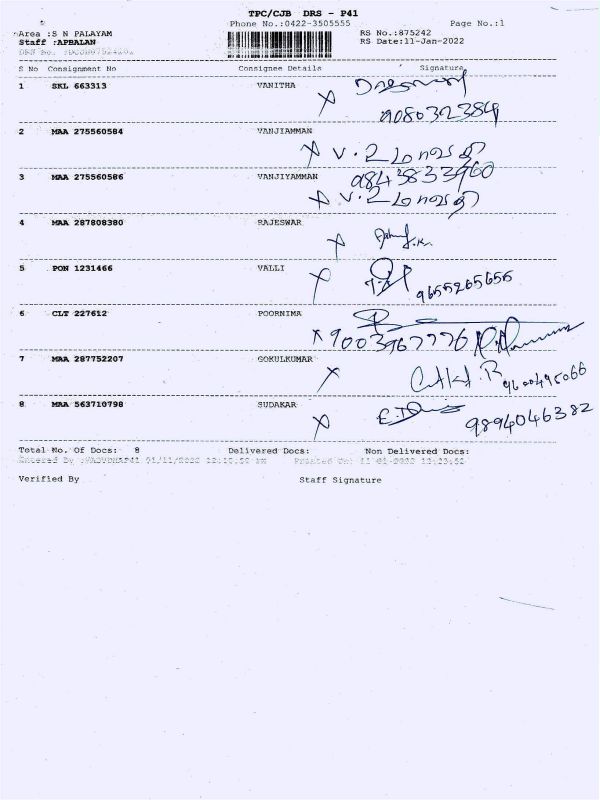 TPC/CJB DRS - P41
Phone No.:0422-3505555 Page No.:1
Area :S N PALAYAM RS No.:875242
Staff :APBALAN RS Date:11-Jan-2022
S No Consignment No Consignee Details Signature
1 SKL 663313 VANITHA
9080323384
2 MAA 275560584 VANJIAMMAN
X V.
3 MAA 275560586 VANJIYAMMAN 9843833960
X V.
4 MAA 287808380 RAJESWAR
X
5 PON 1231466 VALLI
X 9655265655
6 CLT 227612 POORNIMA
X 9003967776
7 MAA 287752207 GOKULKUMAR
X 9600495066
8 MAA 563710798 SUDAKAR
X 9894046382
Total No. Of Docs: 8 Delivered Docs: Non Delivered Docs:
Verified By Staff Signature